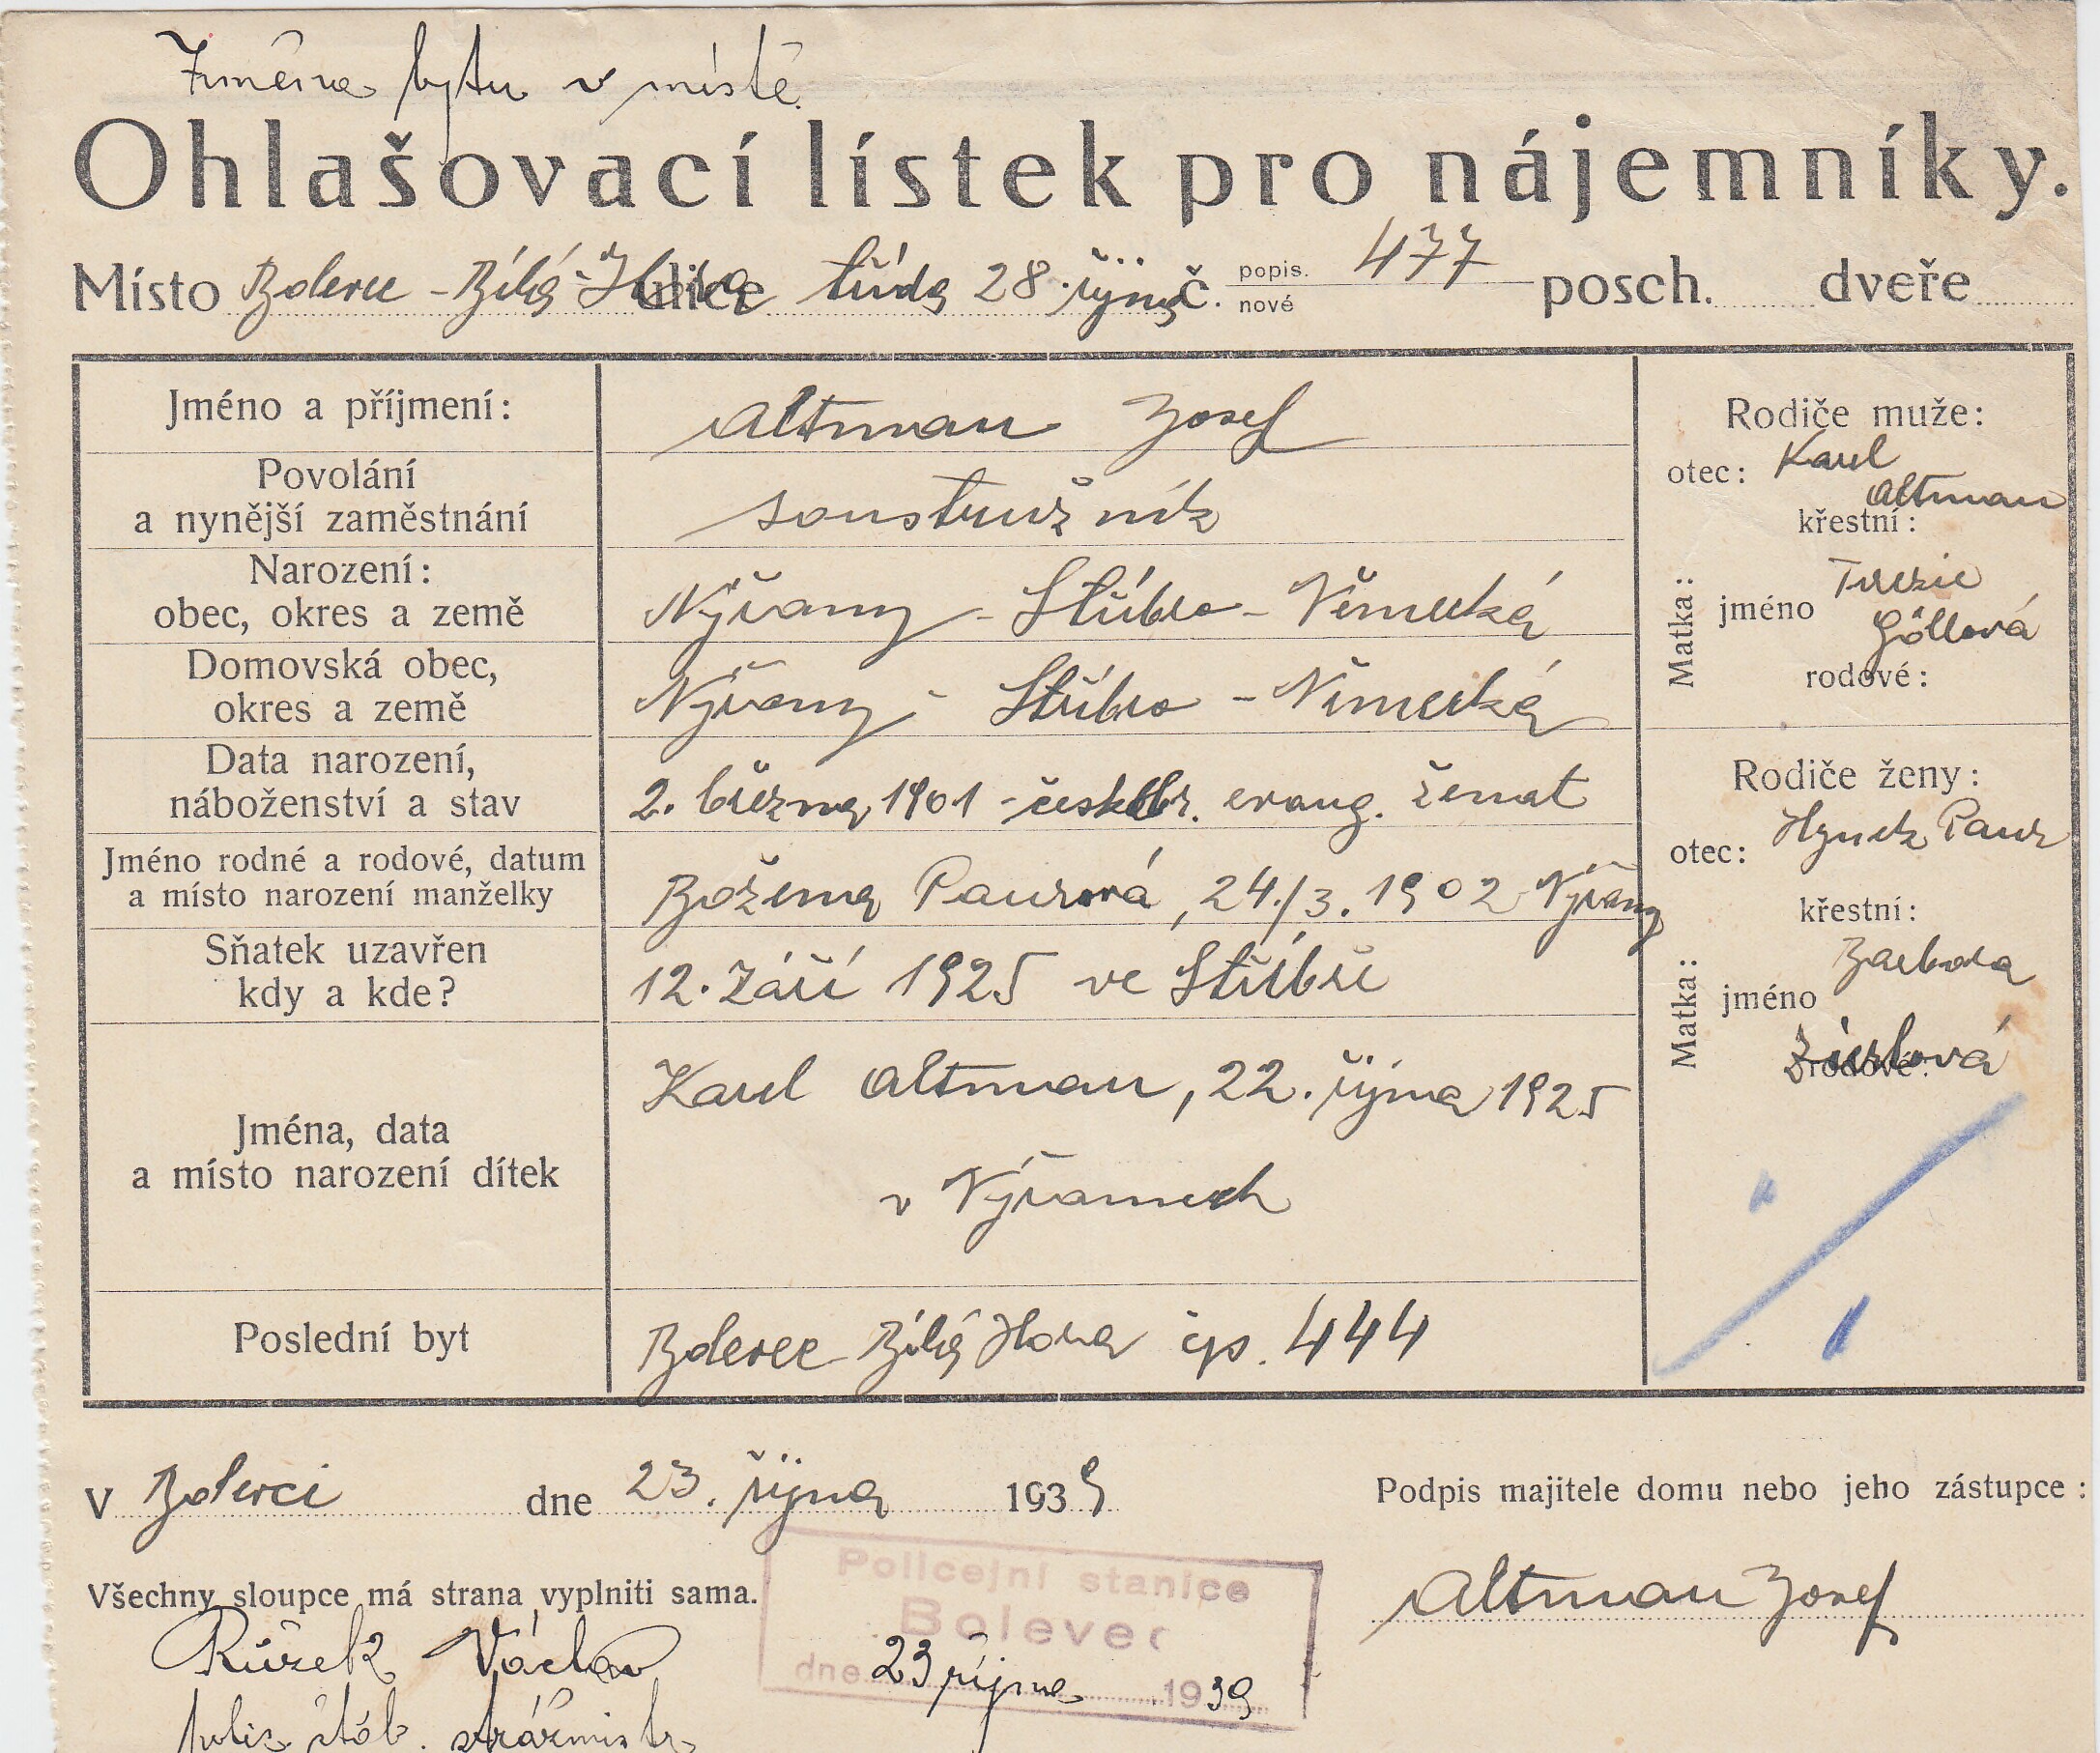 Změna bytu v místě.
Ohlašovací lístek pro nájemníky.
Místo Bolevec - Bílá Hora ulice třída 28. října č. popis. nové 477 posch. dveře
Jméno a příjmení: Altman Josef
Povolání a nynější zaměstnání soustružník
Narození: obec, okres a země Nýřany - Stříbro - Německá
Domovská obec, okres a země Nýřany - Stříbro - Německá
Data narození, náboženství a stav 2. března 1901 - českobr. evang. ženat
Jméno rodné a rodové, datum a místo narození manželky Božena Paurová, 24./3. 1902 Nýřany
Sňatek uzavřen kdy a kde? 12. září 1925 ve Stříbře
Jména, data a místo narození dítek Karel Altman, 22. října 1925
v Nýřanech
Poslední byt Bolevec Bílá Hora čp. 444
Rodiče muže:
otec: Karel
Altman
křestní:
Matka: jméno Terezie
Göllová
rodové:
Rodiče ženy:
otec: Hynek Paur
křestní:
Matka: jméno Barbora
rodové:
V Bolevci dne 23. října 1939
Podpis majitele domu nebo jeho zástupce:
Altman Josef
Všechny sloupce má strana vyplniti sama.
Policejní stanice
Bolevec
dne 23 října 1939
Růžek Václav
poliz. stáb. strážmistr